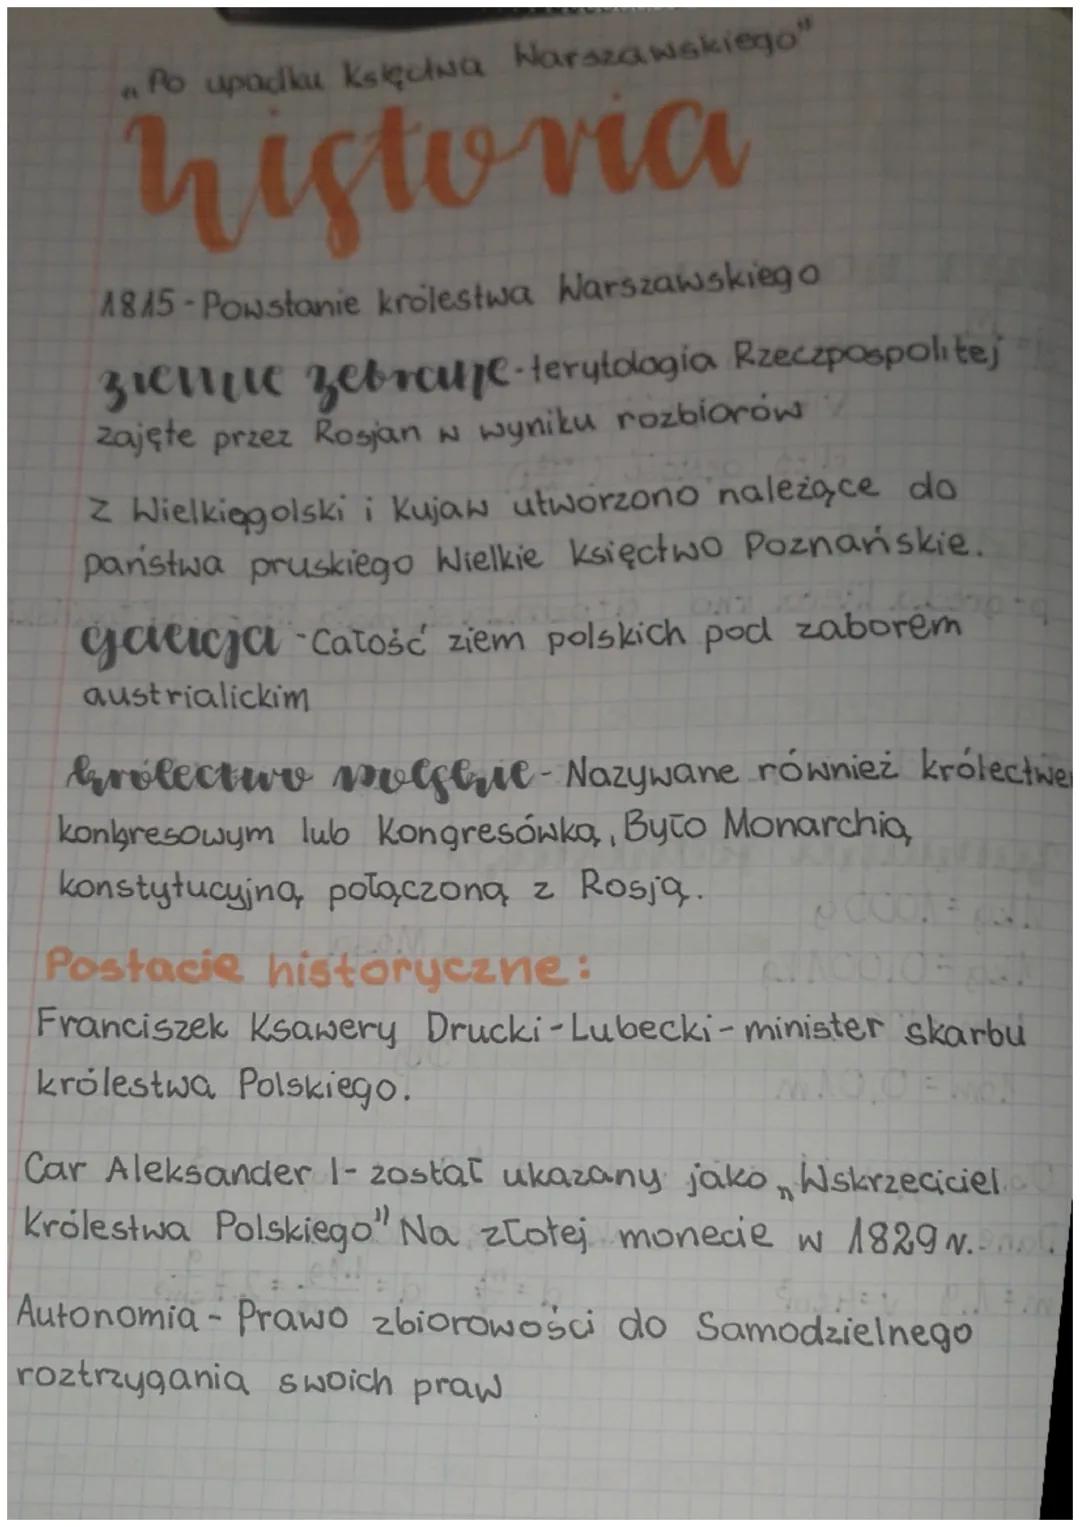 „Po upadku Księctwa Warszawskiego"
historia
1815 - Powstanie królestwa Warszawskiego
ziemie zebrane - terytologia Rzeczpospolitej
zajęte przez Rosjan w wyniku rozbiorów
Z Wielkięgolski i Kujaw utworzono należące do
państwa pruskiego Wielkie Księctwo Poznańskie.
galicja - Całość ziem polskich pod zaborem
austrialickim
królectwo polskie - Nazywane również królectwe
kongresowym lub Kongresówką, Było Monarchią
konstytucyjną połączoną z Rosją.
Postacie historyczne:
Franciszek Ksawery Drucki-Lubecki - minister skarbu
królestwa Polskiego.
Car Aleksander I - został ukazany jako „Wskrzeciciel
Królestwa Polskiego" Na złotej monecie w 1829 r.
Autonomia - Prawo zbiorowości do Samodzielnego
roztrzygania swoich praw